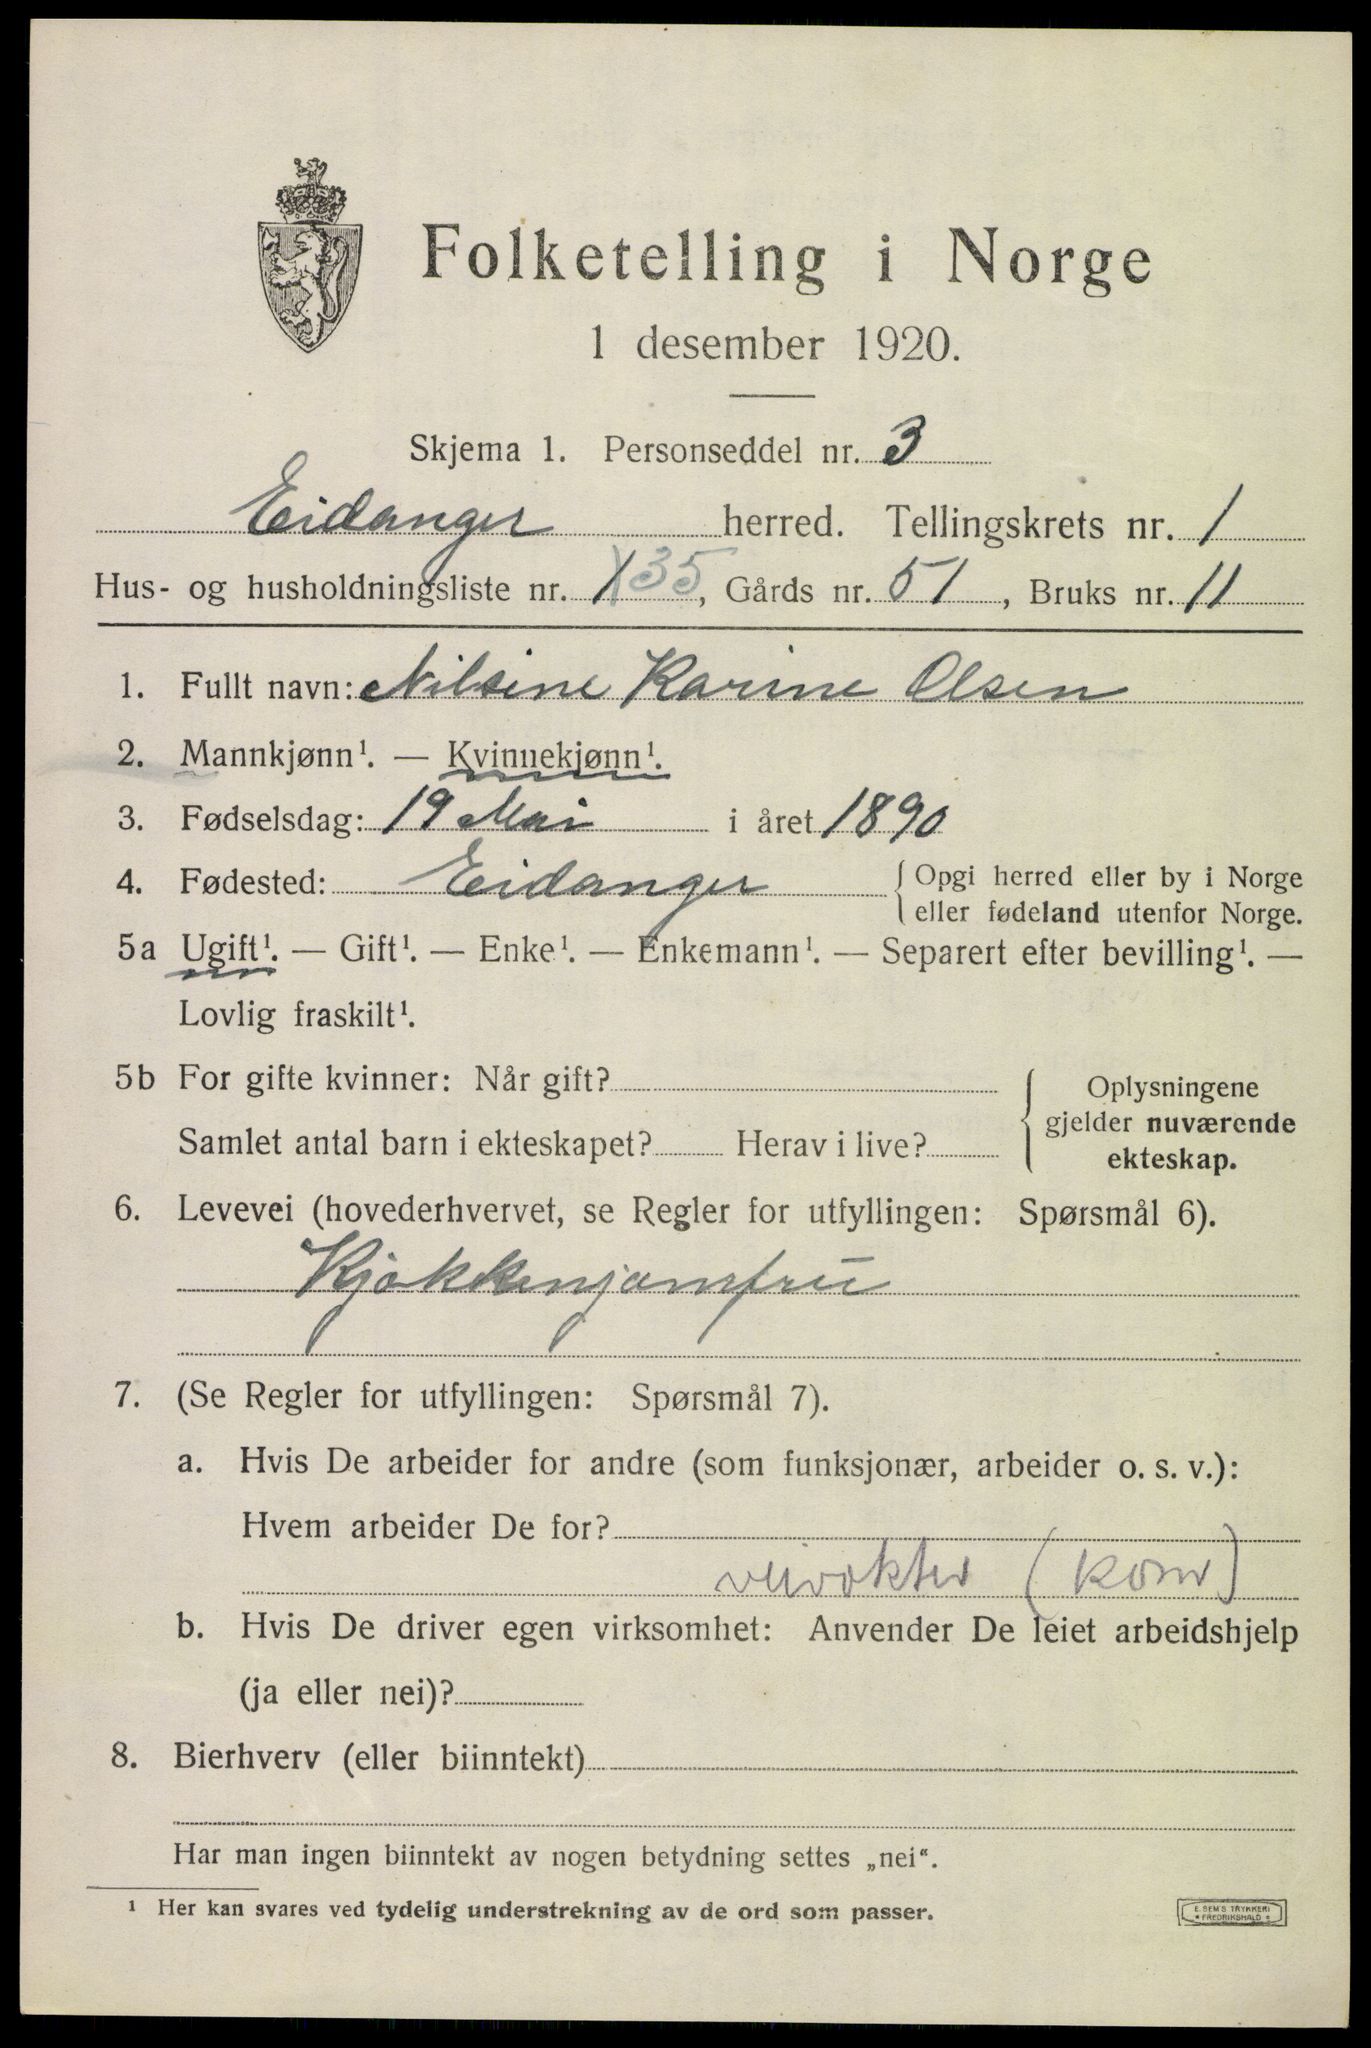 Folketelling i Norge
1 desember 1920.
Skjema 1. Personseddel nr. 3
Eidanger herred. Tellingskrets nr. 1
Hus- og husholdningsliste nr. 1 35, Gårds nr. 51, Bruks nr. 11
1. Fullt navn: Nilsine Karine Olsen
2. Mannkjønn¹. — Kvinnekjønn¹.
3. Fødselsdag: 19 Mai i året 1890
4. Fødested: Eidanger { Opgi herred eller by i Norge
eller fødeland utenfor Norge.
5a Ugift¹. — Gift¹. — Enke¹. — Enkemann¹. — Separert efter bevilling¹. —
Lovlig fraskilt¹.
5b For gifte kvinner: Når gift? { Oplysningene
gjelder nuværende
Samlet antal barn i ekteskapet? Herav i live?
ekteskap.
6. Levevei (hovederhvervet, se Regler for utfyllingen: Spørsmål 6).
Kjøkkenjomfru
7. (Se Regler for utfyllingen: Spørsmål 7).
a. Hvis De arbeider for andre (som funksjonær, arbeider o. s. v.):
Hvem arbeider De for?
veivokter (kom)
b. Hvis De driver egen virksomhet: Anvender De leiet arbeidshjelp
(ja eller nei)?
8. Bierhverv (eller biinntekt)
Har man ingen biinntekt av nogen betydning settes „nei“.
¹ Her kan svares ved tydelig understrekning av de ord som passer.
E. SEM'S TRYKKERI
* FREDRIKSHALD *